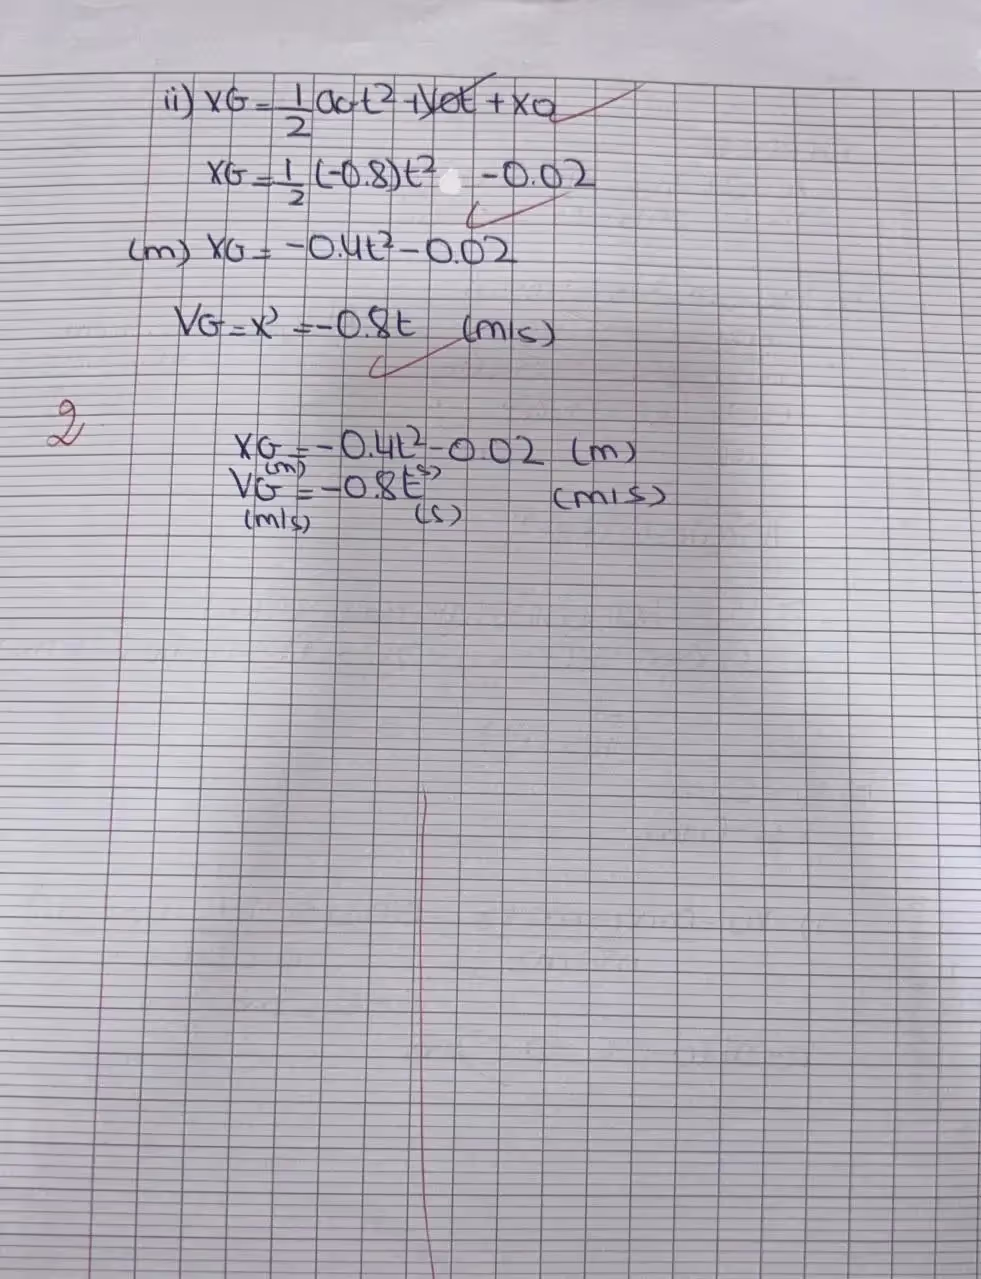 ii) XG = 1/2 a0t² + V0t + x0
XG = 1/2 (-0.8)t² -0.02
(m) XG = -0.4t² - 0.02
VG = x' = -0.8t (m/s)
2
XG = -0.4t² - 0.02 (m)
(m) (s)
VG = -0.8t (m/s)
(m/s) (s)